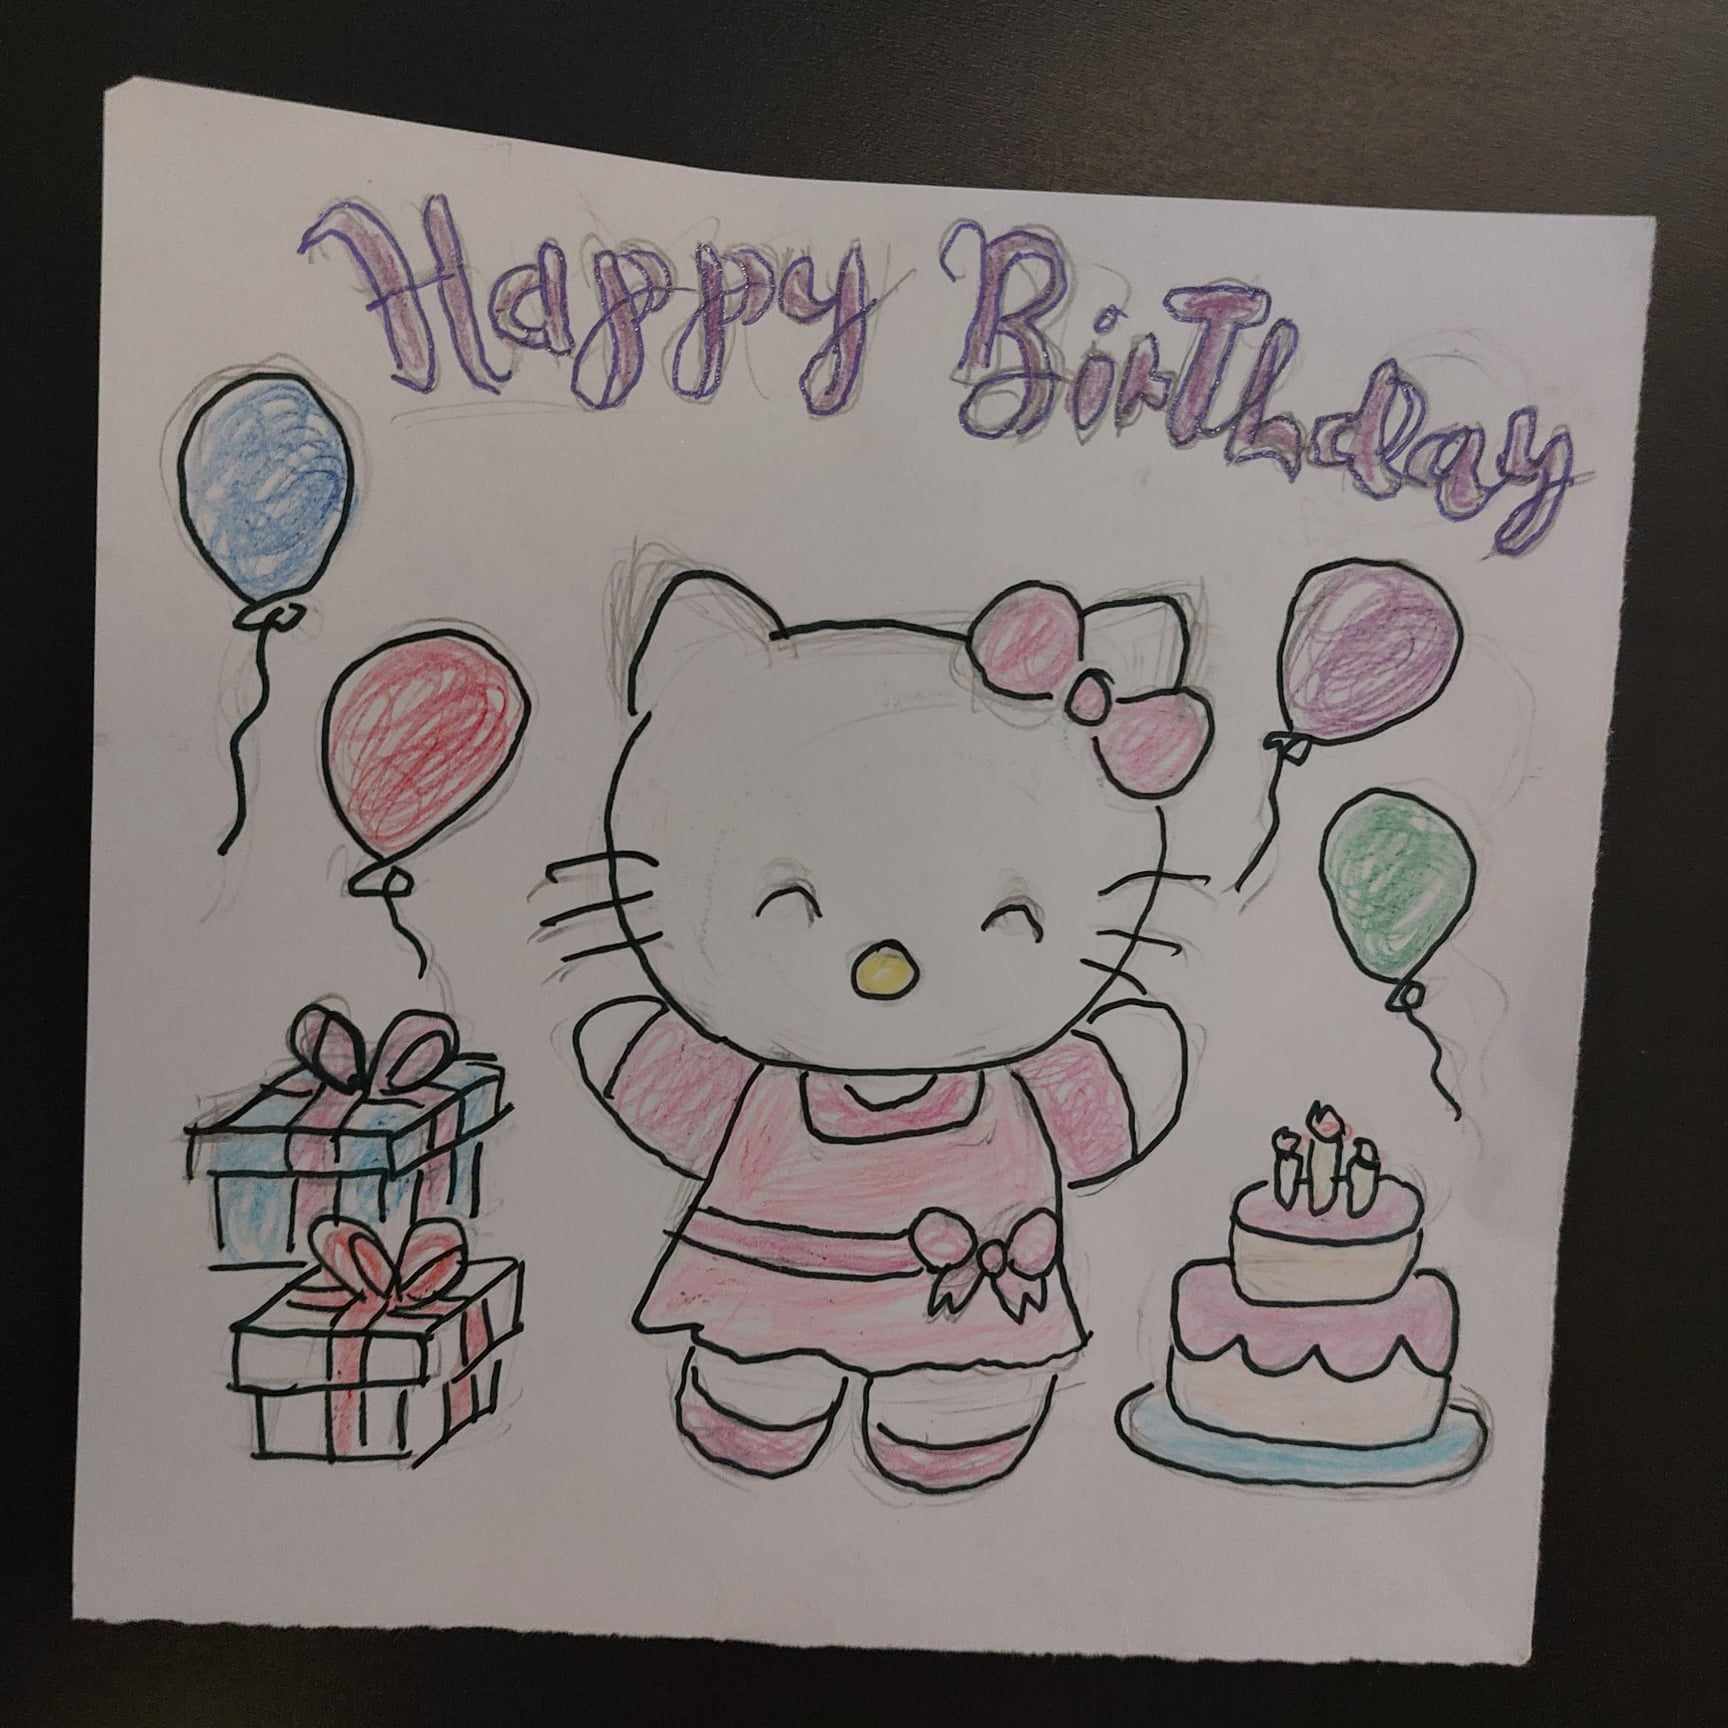 Happy BirThday